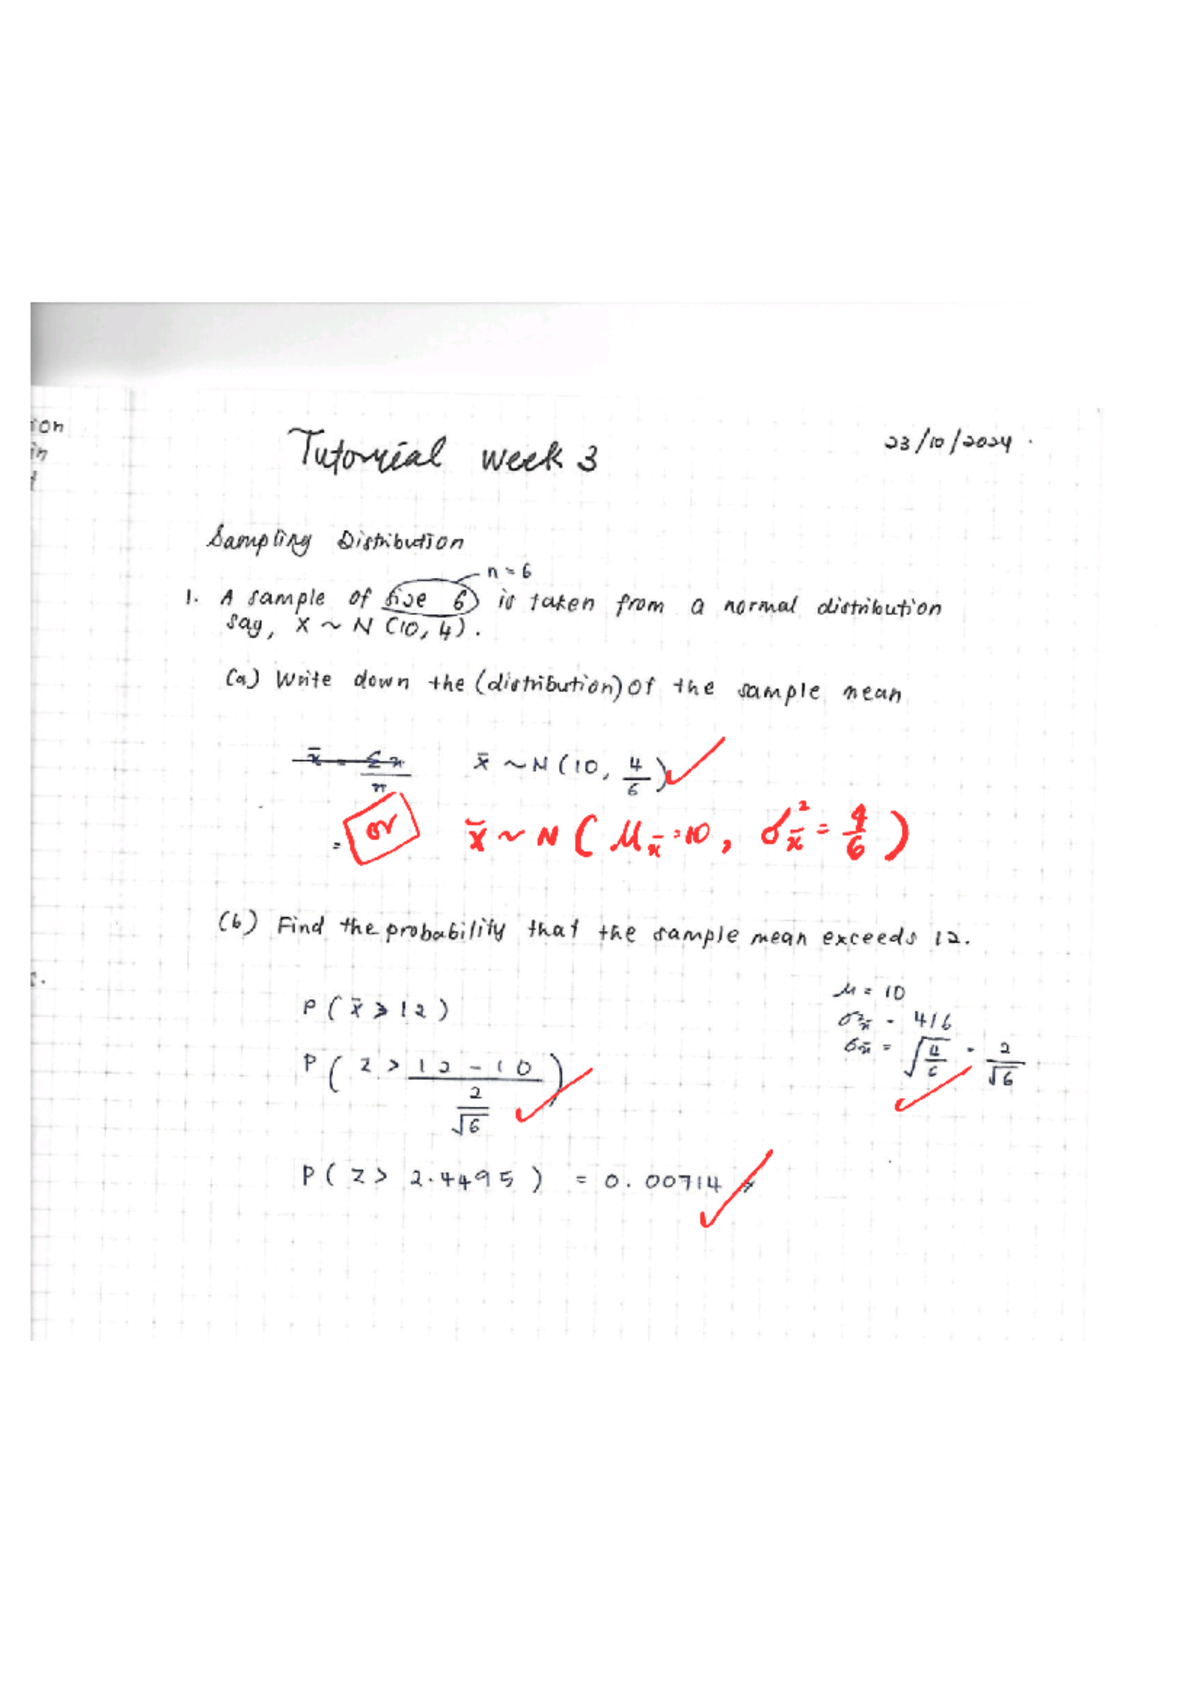 ion
in
Tutorial week 3
23/10/2024
Sampling Distribution
n = 6
1. A sample of size 6 is taken from a normal distribution
say, X ~ N (10, 4).
(a) Write down the (distribution) of the sample mean
x̄ = Σx/n
x̄ ~ N (10, 4/6)
= or x̄ ~ N ( μx̄ = 10, σ²x̄ = 4/6 )
(b) Find the probability that the sample mean exceeds 12.
μ = 10
σ²x̄ = 4/6
σx̄ = √(4/6) = 2/√6
P ( x̄ > 12 )
P ( z > (12 - 10)/(2/√6) )
P ( z > 2.4495 ) = 0.00714